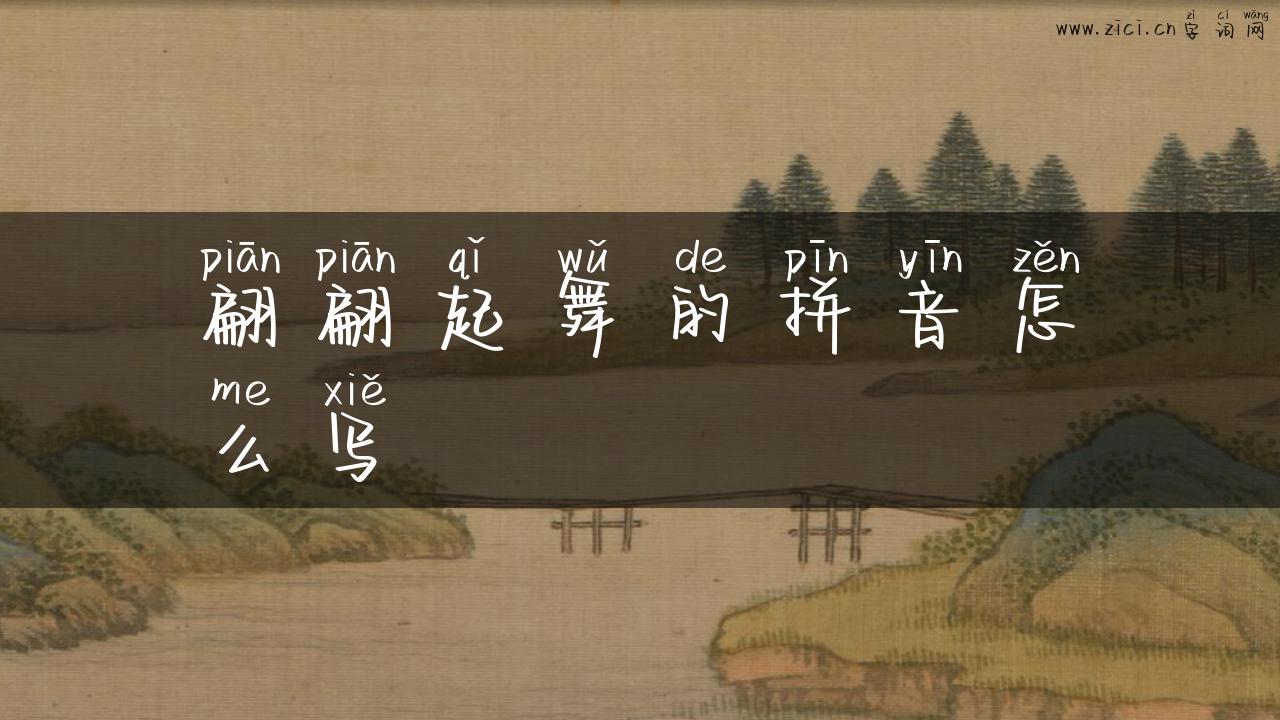 zì cí wǎng
www.zici.cn 字词网
piān piān qǐ wǔ de pīn yīn zěn
翩翩起舞的拼音怎
me xiě
么写